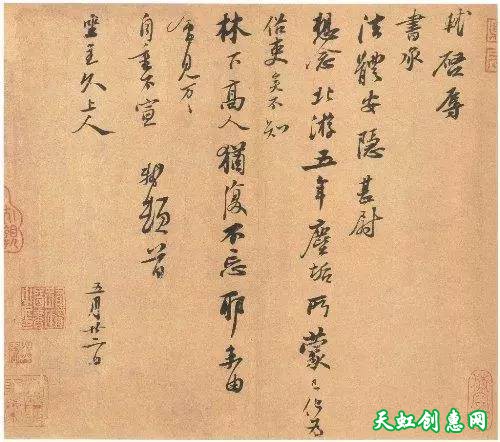 軾啓辱
書承
法體安隱甚尉
想念北游五年塵垢所蒙已化爲
俗吏矣不知
林下高人猶復不忘耶未由
會見万万
自重不宣 軾頓首
坐主久上人
五月廿二日
天虹创惠网